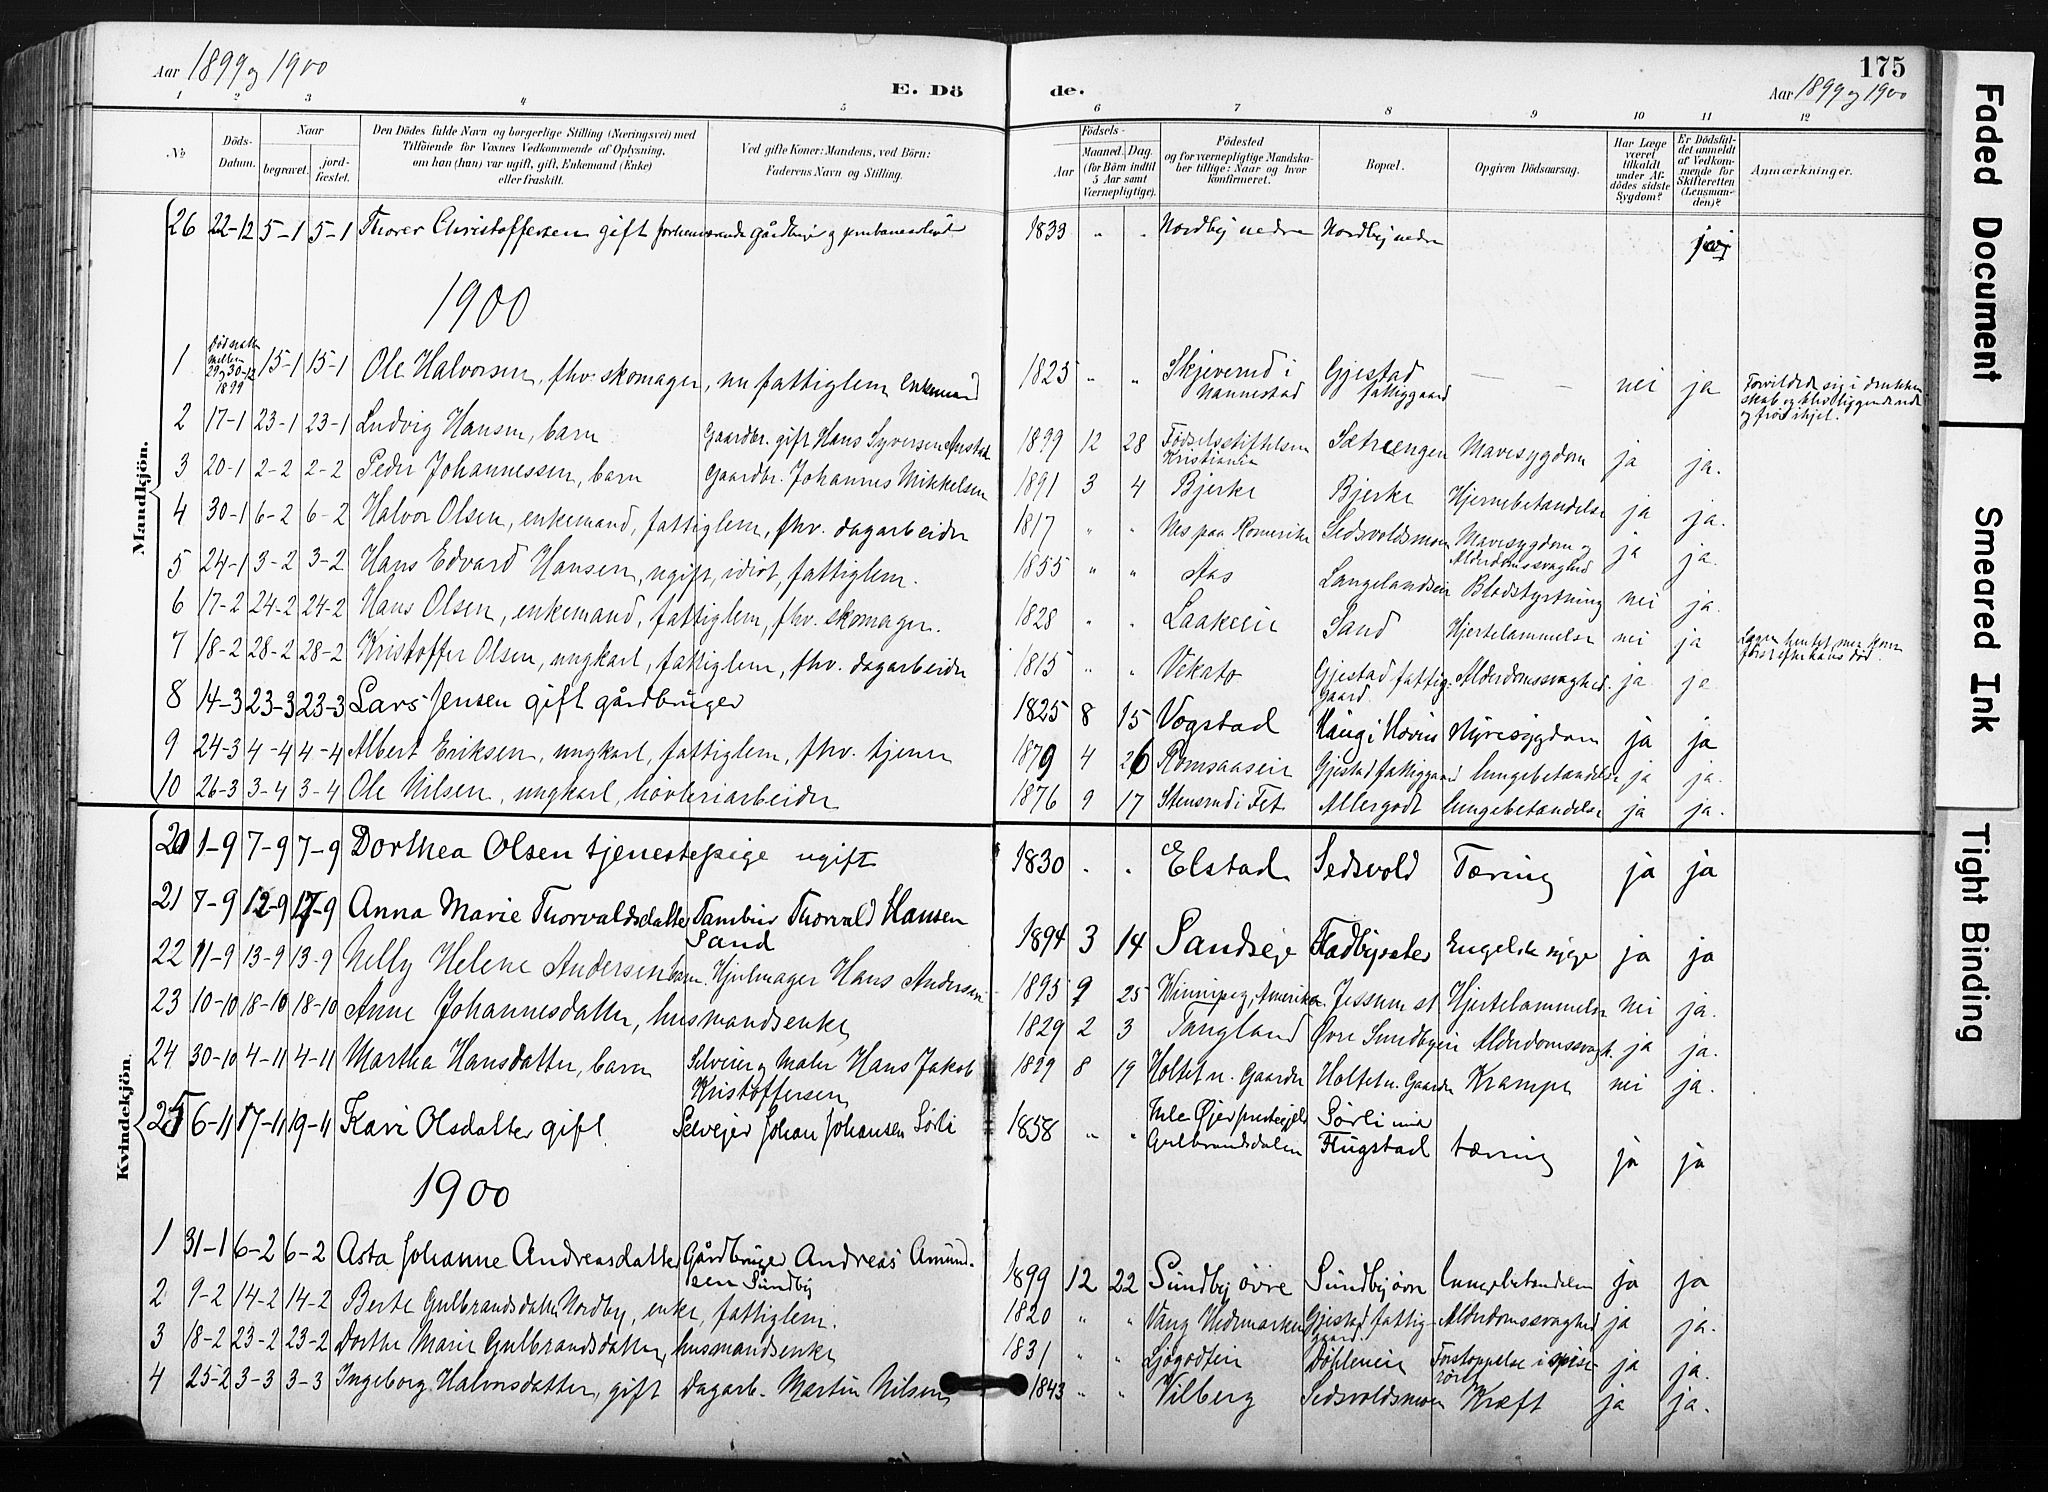 Aar 1899 og 1900
E. Dö
de.
175
Aar 1899 og 1900
1 2 3 4 5 6 7 8 9 10 11 12
No
Döds-Datum.
Naar
begravet.
jord-fæstet.
Den Dödes fulde Navn og borgerlige Stilling (Næringsvei) med
Tilföiende for Voxnes Vedkommende af Oplysning,
om han (hun) var ugift, gift, Enkemand (Enke)
eller fraskilt.
Ved gifte Koner: Mandens, ved Börn:
Faderens Navn og Stilling.
Födsels-
Aar
Maaned. Dag.
(for Börn indtil
5 Aar samt
Værnepligtige).
Födested
og for værnepligtige Mandska-
ber tillige: Naar og hvor
konfirmeret.
Bopæl.
Opgiven Dödsaarsag.
Har Læge
været
tilkaldt
under Af-
dödes sidste
Sygdom?
Er Dödsfal-
det anmeldt
af Vedkom-
mende for
Skifteretten
(Lensman-
den)?
Anmærkninger.
Mandkjön.
26 22-12 5-1 5-1 Thorer Christoffersen gift forhenværende Gårdbruger og 1833 " " Nordby nedre Nordby nedre ja
1900
1 Död natten mellem 29 og 30-12 1899 15-1 15-1 Ole Halvorsen, fhv. skomager, nu fattiglem enkemand 1825 " " Skjeverud i Nannestad Gjestad fattiggaard — — nei ja Forvildede sig i drukken
skab og blev liggende ude
og frös ihjel.
2 17-1 23-1 23-1 Ludvig Hansen, barn Gaardbr. gift Hans Syversen 1899 12 28 Födselsstiftelsen Kristiania Sætreengen Mavesygdom ja ja.
3 20-1 2-2 2-2 Peder Johannessen, barn Gaardbr. Johannes Mikkelsen 1891 3 4 Bjerke Bjerke Hjernebetændelse ja ja.
4 30-1 6-2 6-2 Halvor Olsen, enkemand, fattiglem, fhv. dagarbeider 1817 " " Nes paa Romerike Sedsvoldsmoen Mavesygdom og Alderdomssvaghed ja ja.
5 24-1 3-2 3-2 Hans Edvard Hansen, ugift, idiot, fattiglem. 1855 " " Aas Langelandseie Blodstyrtning nei ja.
6 17-2 24-2 24-2 Hans Olsen, enkemand, fattiglem, fhv. skomager. 1828 " " Laakeeie Sand Hjertelammelse nei ja Lægen hentet, men kom
först efter hans död.
7 18-2 28-2 28-2 Kristoffer Olsen, ungkarl, fattiglem, fhv. dagarbeider 1815 " " Vekato Gjestad fattig-gaard Alderdomssvaghed ja ja
8 14-3 23-3 23-3 Lars Jensen gift gårdbruger 1825 8 15 Vogstad Haug i Hovin Nyresygdom ja ja
9 24-3 4-4 4-4 Albert Eriksen, ungkarl, fattiglem, fhv. tjener 1879 4 26 Romsaaseie Gjestad fattiggaard lungebetændelse ja ja.
10 26-3 3-4 3-4 Ole Nilsen, ungkarl, hövleriarbeider 1876 9 17 Stensrud i Fet Allergodt lungebetændelse ja ja.
Kvindekjön.
20 1-9 7-9 7-9 Dorthea Olsen tjenestepige ugift 1830 " " Elstad Sedsvold Tæring ja ja
21 7-9 12-9 17-9 Anna Marie Thorvaldsdatter Tambur Thorvald Hansen Sand 1894 3 14 Sandseje Fladbyseter Engelske syge ja ja
22 11-9 13-9 13-9 Nelly Helene Andersen barn. Hjulmager Hans Andersen 1895 9 25 Winnipeg, Amerika. Jessum st. Hjertelammelse nei ja.
23 10-10 18-10 18-10 Anne Johannesdatter, husmandsenke 1829 2 3 Tangland Øvre Sundbyeie Alderdomssvagh. ja ja.
24 30-10 4-11 4-11 Martha Hansdatter, barn Selveier og maler Hans Jakob Kristoffersen 1899 8 19 Holtet u. Gaarder Holtet u. Gaarder Krampe nei ja.
25 6-11 17-11 19-11 Kari Olsdatter gift. Selvejer Johan Johansen Sørli 1858 " " Øier præstegjeld Gulbrandsdalen Sørli under Flugstad tæring ja ja
1900
1 31-1 6-2 6-2 Asta Johanne Andreasdatter Gårdbruger Andreas Amund-sen Sundby 1899 12 22 Sundby övre Sundby övre lungebetændelse ja ja
2 9-2 14-2 14-2 Berte Gulbrandsdatter Nordby, enke, fattiglem. 1820 " " Vang Hedemarken Gjestad fattig-gaard. Alderdomssvaghed ja ja.
3 18-2 23-2 23-2 Dorthe Marie Gulbrandsdatter, husmandsenke 1831 " " Ljögodteie Döhleneie Forstoppelse i spise-röret ja ja.
4 25-2 3-3 3-3 Ingeborg Halvorsdatter, gift Dagarb. Martin Nilsen 1843 " " Vilberg Sedsvoldsmoen Kræft ja ja.
Faded Document
Smeared Ink
Tight Binding